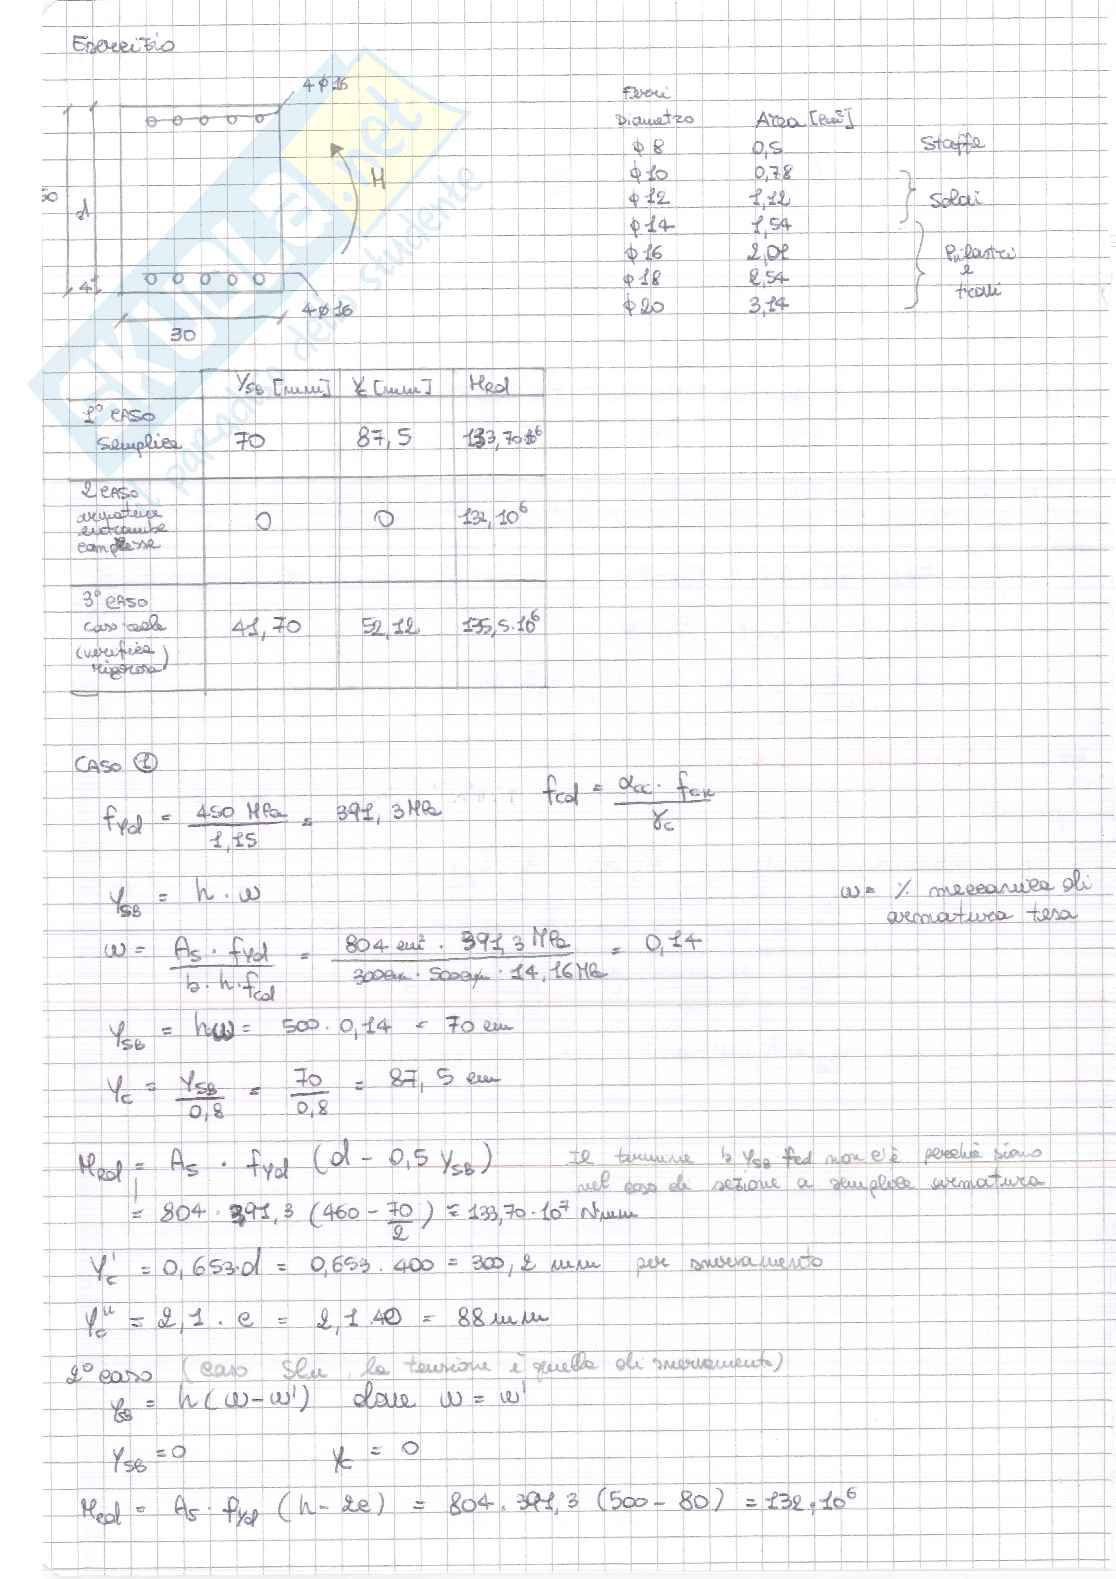 Esercizio
4ϕ16
50
d
M
4
4ϕ16
30
Ferri
Diametro Area [cm²]
ϕ8 0,5 Staffe
ϕ10 0,78
ϕ12 1,12 Solai
ϕ14 1,54
ϕ16 2,02 Pilastri
ϕ18 2,54 e
ϕ20 3,14 travi
SKUOLA.net
il paradiso dello studente
YSB [mm] Yc [mm] MRd
1° CASO
Semplice 70 87,5 133,70·10⁶
2 CASO
armature
entrambe 0 0 132,10⁶
compresse
3° CASO
caso reale 41,70 52,12 135,5·10⁶
(verifica
rigorosa)
CASO ①
fyd = 450 MPa / 1,15 = 391,3 MPa fcd = αcc · fck / γc
YSB = h · ω ω = % meccanica di
armatura tesa
ω = As · fyd / b · h · fcd = 804 cm² · 391,3 MPa / 300cm · 500cm · 14,16 MPa = 0,14
YSB = hω = 500 · 0,14 = 70 cm
Yc = YSB / 0,8 = 70 / 0,8 = 87,5 cm
MRd = As · fyd (d - 0,5 YSB) Il termine b YSB fcd non c'è perchè siamo
nel caso di sezione a semplice armatura
= 804 · 391,3 (460 - 70/2) = 133,70 · 10⁷ N·mm
Yc' = 0,653·d = 0,653 · 400 = 300,2 mm per snervamento
Yc'' = 2,1 · c = 2,1 · 40 = 88 mm
2° caso (caso Slu, la tensione è quella di snervamento)
YSB = h (ω - ω') dove ω = ω'
YSB = 0 Yc = 0
MRd = As · fyd (h - 2c) = 804 · 391,3 (500 - 80) = 132 · 10⁶